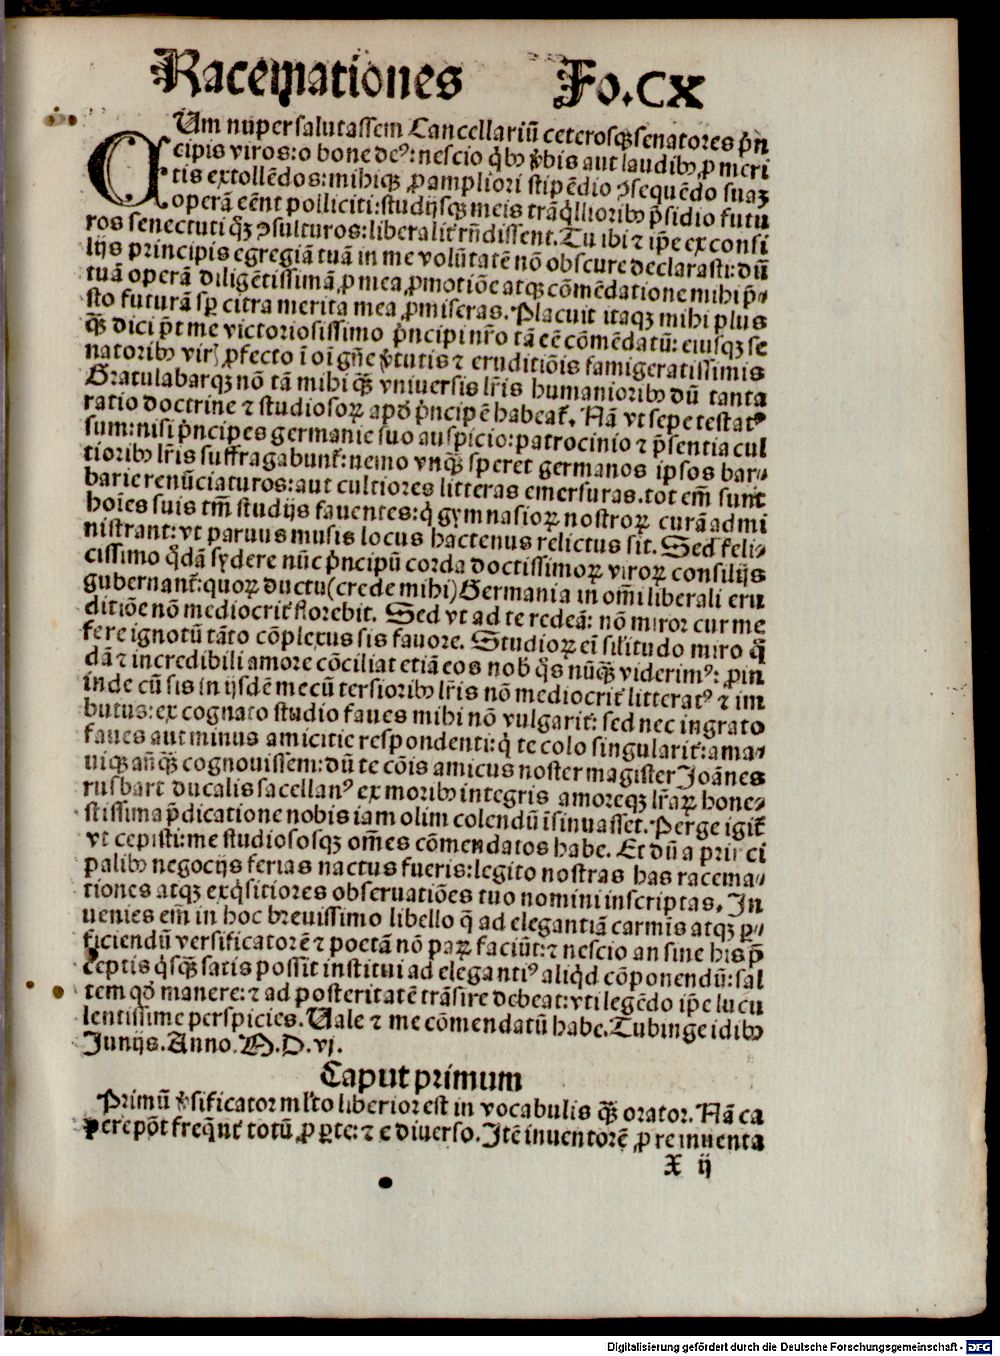 Racemationes Fo.CX
CUm nuper salutassem Cancellariū ceterosqꝫ senatores p̃n
cipis viros: o bone deꝰ: nescio q̃bꝰ v̓bis aut laudibꝰ ꝓ meri
tis extollēdos: mihiqꝫ ꝓ ampliori stipēdio ꝯsequēdo suaꝫ
operā eēnt polliciti: studijsqꝫ meis trāq̃llioribꝰ p̃sidio futu
ros senectuti qꝫ ꝯsulturos: liberalit̓ rn̄dissent. Tu ibi ⁊ ip̄e ex consi
lijs principis egregiā tuā in me volūtatē nō obscure declarasti: dū
tuā operā diligētissimā ꝓ mea ꝓmotiōe atqꝫ cōmēdatione mihi p̃⸗
sto futurā sꝑ citra merita mea ꝓmiseras. Placuit itaqꝫ mihi plus
qꝫ̄ dici p̄t me victoriosissimo p̃ncipi nr̄o tā eē cōmēdatū: eiusqꝫ se
natoribꝰ viris ꝓfecto ī oī gn̄e v̓tutis ⁊ eruditiōis famigeratissimis
Gratulabarqꝫ nō tā mihi qꝫ̄ vniuersis lr̄is humanioribꝰ dū tanta
ratio doctrine ⁊ studiosoꝝ apd̓ p̃ncipē habeat̓. Nā vt sepe testatꝰ
sum: nisi p̃ncipes germanie suo auspicio: patrocinio ⁊ p̃sentia cul
tioribꝰ lr̄is suffragabunt̓: nemo vnqꝫ̄ speret germanos ipsos bar⸗
barie renūciaturos: aut cultiores litteras emersuras. tot em̄ sunt
hoīes suis tm̄ studijs fauentes: q̃ gymnasioꝝ nostroꝝ curā admi
nistrant: vt paruus musis locus hactenus relictus sit. Sed feli⸗
cissimo q̃dā sydere nūc p̃ncipū corda doctissimoꝝ viroꝝ consilijs
gubernant̓: quoꝝ ductu (crede mihi) Germania in om̄i liberali eru
ditiōe nō mediocrit̓ florebit. Sed vt ad te redeā: nō miror cur me
fere ignotū tāto cōplexus sis fauore. Studioꝝ eī sil̓itudo miro q̃
dā ⁊ incredibili amore cōciliat etiā eos nob̓ q̃s nūqꝫ̄ viderimꝰ: ꝓin
inde cū sis in ijsdē mecū tersioribꝰ lr̄is nō mediocrit̓ litteratꝰ ⁊ im
butus: ex cognato studio faues mihi nō vulgarit̓: sed nec ingrato
faues aut minus amicitie respondenti: q̃ te colo singularit̓: ama⸗
uiqꝫ an̄qꝫ̄ cognouissem: dū te cōis amicus noster magister Joānes
rusbart ducalis sacellanꝰ ex moribꝰ integris amoreqꝫ lr̄aꝝ hone⸗
stissima p̃dicatione nobis iam olim colendū īsinuasset. Perge igit̓
vt cepisti: me studiososqꝫ om̄es cōmendatos habe. Et dū a princi
palibꝰ negocijs ferias nactus fueris: legito nostras has racema⸗
tiones atqꝫ exq̃sitiores obseruatiōes tuo nomini inscriptas. In
uenies em̄ in hoc breuissimo libello q̄ ad elegantiā carmīs atqꝫ ꝑ⸗
ficiendū versificatorē ⁊ poetā nō paꝝ faciūt: ⁊ nescio an sine his p̃
ceptis q̃sqꝫ̄ satis possīt institui ad elegantiꝰ aliq̃d cōponendū: sal
tem qd̓ manere: ⁊ ad posteritatē trāsire debeat: vti legēdo ip̄e lucu
lentissime perspicies. Vale ⁊ me cōmendatū habe. Tubinge idibꝰ
Junijs. Anno. M.D.vj.
Caput primum
Primū v̓sificator ml̓to liberior est in vocabulis qꝫ̄ orator. Nā ca
pere pōt freq̃nt̓ totū ꝓ ꝑte: ⁊ e diuerso. Itē inuentorē ꝓ re inuenta
X ij
Digitalisierung gefördert durch die Deutsche Forschungsgemeinschaft - DFG